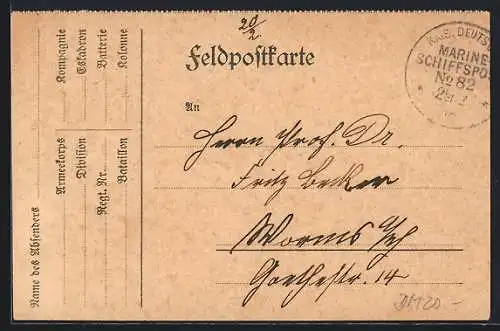 20/2
Feldpostkarte
KAIS. DEUTSCHE
MARINE-
SCHIFFSPOST
No 82
29. 2
An
Herrn Prof. Dr.
Fritz Becker
Worms
Goethestr. 14
Name des Absenders
Armeekorps Kompagnie
Division Eskadron
Regt. Nr. Batterie
Bataillon Kolonne